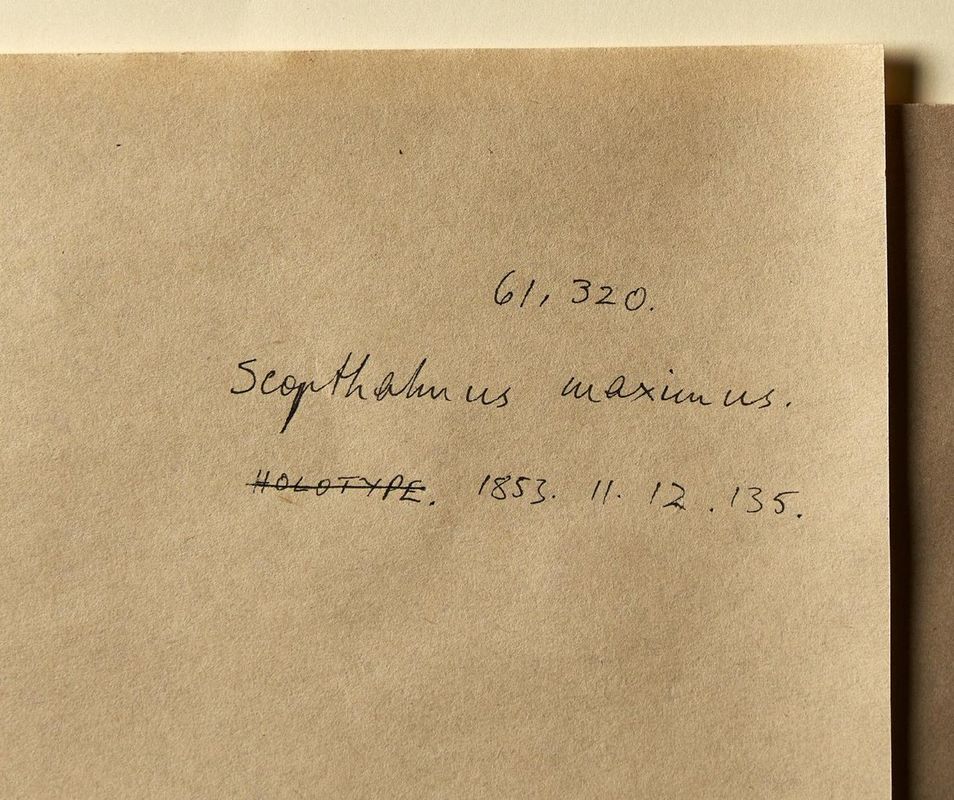 61, 320.
Scopthalmus maximus.
HOLOTYPE. 1853. 11. 12. 135.